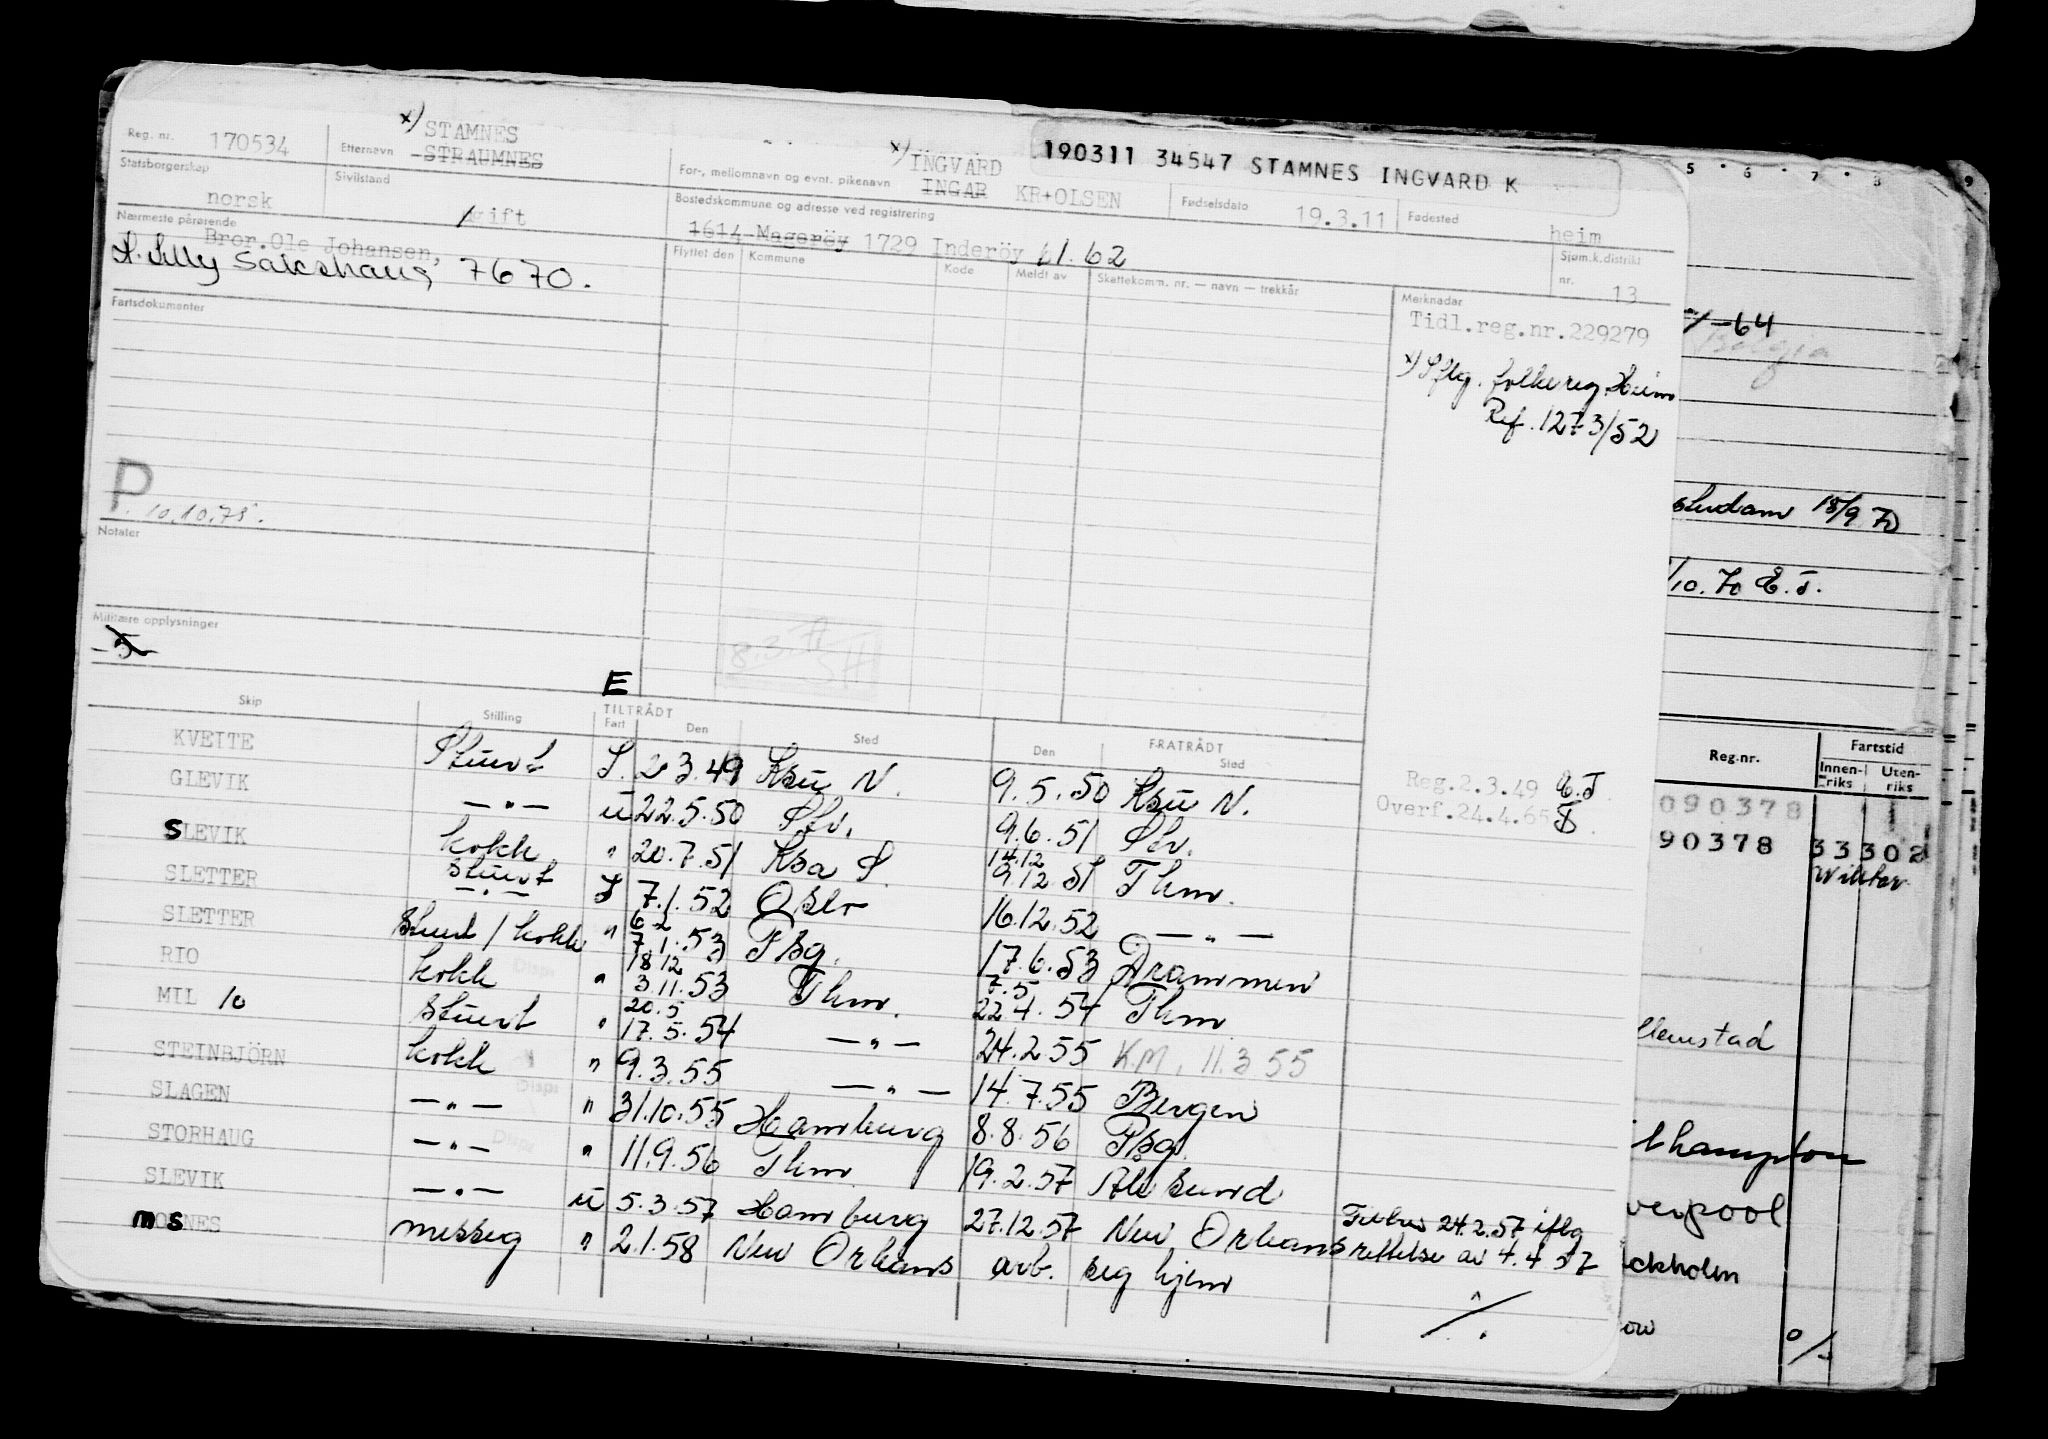 x) STAMNES
Reg. nr. 170534 Etternavn STRAUMNES
x) INGVARD
For-, mellomnavn og evnt. pikenavn INGAR KR+OLSEN
190311 34547 STAMNES INGVARD K
Fødselsdato 19.3.11 Fødested heim
Statsborgerskap norsk Sivilstand gift
Bostedskommune og adresse ved registrering
1614 Mageröy 1729 Inderöy 61.62
Sjøm.k.distrikt nr. 13
Nærmeste pårørende
Bror. Ole Johansen,
Sakshaug 7670.
Flyttet den Kommune Kode Meldt av Skattekomm. nr. — navn — trekkår
Merknader
Tidl.reg.nr.229279
x) Iflg. folkereg. Heim
Ref. 1273/52
Fartsdokumenter
P. 10.10.75.
Notater
Militære opplysninger
-5-
8.3.71
E
Skip Stilling TILTRÅDT Fart Den Sted FRATRÅDT Den Sted
KVEITE Stuert I. 2.3.49 Ksu N. 9.5.50 Ksu N. Reg.2.3.49 E.T
GLEVIK —"— u 22.5.50 Slv. 9.6.51 Slv. Overf.24.4.65
SLEVIK kokk " 20.7.51 Ksa S. 14.12 9.12.51 Thm.
SLETTER stuert —"— I 7.1.52 Oslo 16.12.52 —"—
SLETTER Stuert / kokk " 6.2 7.1.53 Psg. 17.6.53 Drammen
RIO kokk " 18.12 3.11.53 Thm. 7.5 22.4.54 Thm
MIL 10 Stuert " 20.5 17.5.54 —"— 24.2.55 K.M. 11.3 55
STEINBJÖRN kokk " 9.3.55 —"— 14.7.55 Bergen
SLAGEN —"— " 31.10.55 Hamburg 8.8.56 Psg.
STORHAUG —"— " 11.9.56 Thm 19.2.57 Ålesund
SLEVIK —"— u 5.3.57 Hamburg 27.12.57 New Orleans 24.2.57 iflg
messeg " 2.1.58 New Orleans arb. seg hjem rettelse av 4.4 57
5 6 7 8 9
-64
Belgia
18/9 70
10.70 E.T.
Reg.nr. Fartstid
Innen-riks Uten-riks
090378
90378 33302
llemstad
thampton
verpool
ockholm